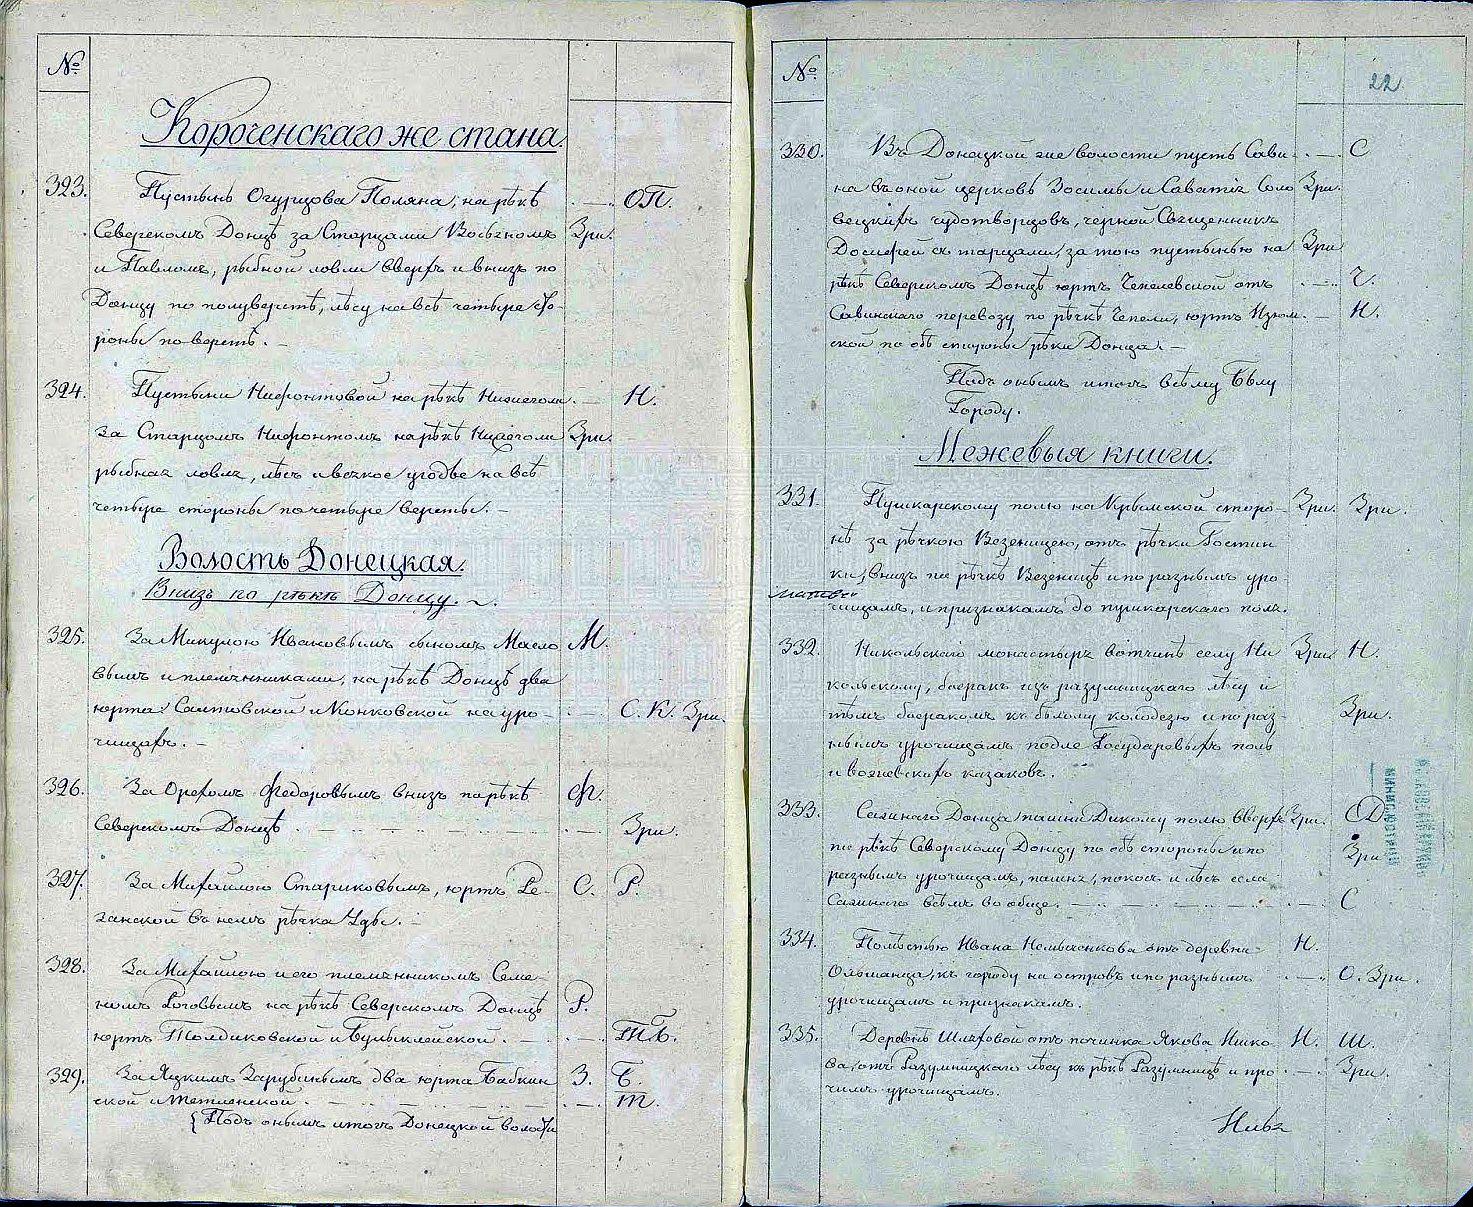 №
Короченскаго же стана.
323. Пустынь Огурцова Поляна, на рѣкѣ — ОП.
Северскомъ Донцѣ за Старцами Зри.
и Павломъ, рыбной ловли вверхъ и внизъ по
Донцу по полуверстѣ, лѣсу на всѣ четыре сто-
роны по верстѣ. —
324. Пустыни Нифонтовой на рѣкѣ Нижеголи — Н.
за Старцомъ Нифонтомъ на рѣкѣ Нижеголи Зри.
рыбная ловля, лѣсъ и всякое угодье на всѣ
четыре стороны по четыре версты. —
Волость Донецкая.
Внизъ по рѣкѣ Донцу.
325. За Микулою Ивановымъ сыномъ Масло М.
вымъ и племянниками, на рѣкѣ Донцѣ два
юрта Салтовской и Конковской на уро- — С. К. Зри.
чищахъ. —
326. За Орехомъ Федоровымъ внизъ по рѣкѣ Ф.
Северскомъ Донцѣ — Зри.
327. За Михайлою Стариковымъ, юртъ Ре- С. Р.
занской въ немъ рѣчка Уды. —
328. За Михайлою и его племянникомъ Семе-
номъ Роговымъ на рѣкѣ Северскомъ Донцѣ Р.
юртъ Толдиковской и Булыклейской. — Т.Б.
329. За Яцкимъ Зарубинымъ два юрта Бабкин З. Б.
ской и Тетлинской. — Т.
{Подъ онымъ итогъ Донецкой волости
№ 22
330. Въ Донецкой же волости пусть Сави- — С
на въ оной церковь Зосимы и Саватія Соло Зри.
вецкихъ чудотворцовъ, черной Священникъ
Досифей съ старцами, за тою пустынью на Зри
рѣкѣ Северскомъ Донцѣ юртъ Чепелевской отъ — Ч.
Савинскаго перевозу по рѣчкѣ Чепели, юртъ Изюм- — И.
ской по обѣ стороны рѣки Донца. —
Подъ онымъ итогъ всѣму Бѣлу
Городу.
Межевыя книги.
331. Пушкарскому полю на Крымской сторо- Зри. Зри.
нѣ за рѣчкою Везеницею, отъ рѣчки Гостин
ки, внизъ по рѣчкѣ Везеницѣ и по разнымъ уро
чищамъ, и признакамъ до пушкарскаго поля.
332. Никольскаго монастыря вотчинѣ селу Ни Зри Н.
кольскому, боеракъ изъ разумницкаго лѣсу и
тѣмъ боеракомъ къ бѣлому колодезю и по раз- Зри.
нымъ урочищамъ подлѣ Государевыхъ поль
и казаковъ.
333. Сажнаго Донца пашни Дикому полю вверхъ Зри. СД.
по рѣкѣ Северскому Донцу по обѣ стороны и по Зри
разнымъ урочищамъ, пашня, покосъ и лѣсъ села
Сажнаго всѣмъ вообще. — С
334. Помѣстью Ивана отъ деревни Н.
Ольшанца, къ городу на островъ и по разнымъ — О. Зри.
урочищамъ и признакамъ.
335. Деревнѣ Шляховой отъ починка Якова Нико Н. Ш.
ва, отъ Разумницкаго лѣсу къ рѣкѣ Разумницѣ и про — Зри.
чимъ урочищамъ.
Нива